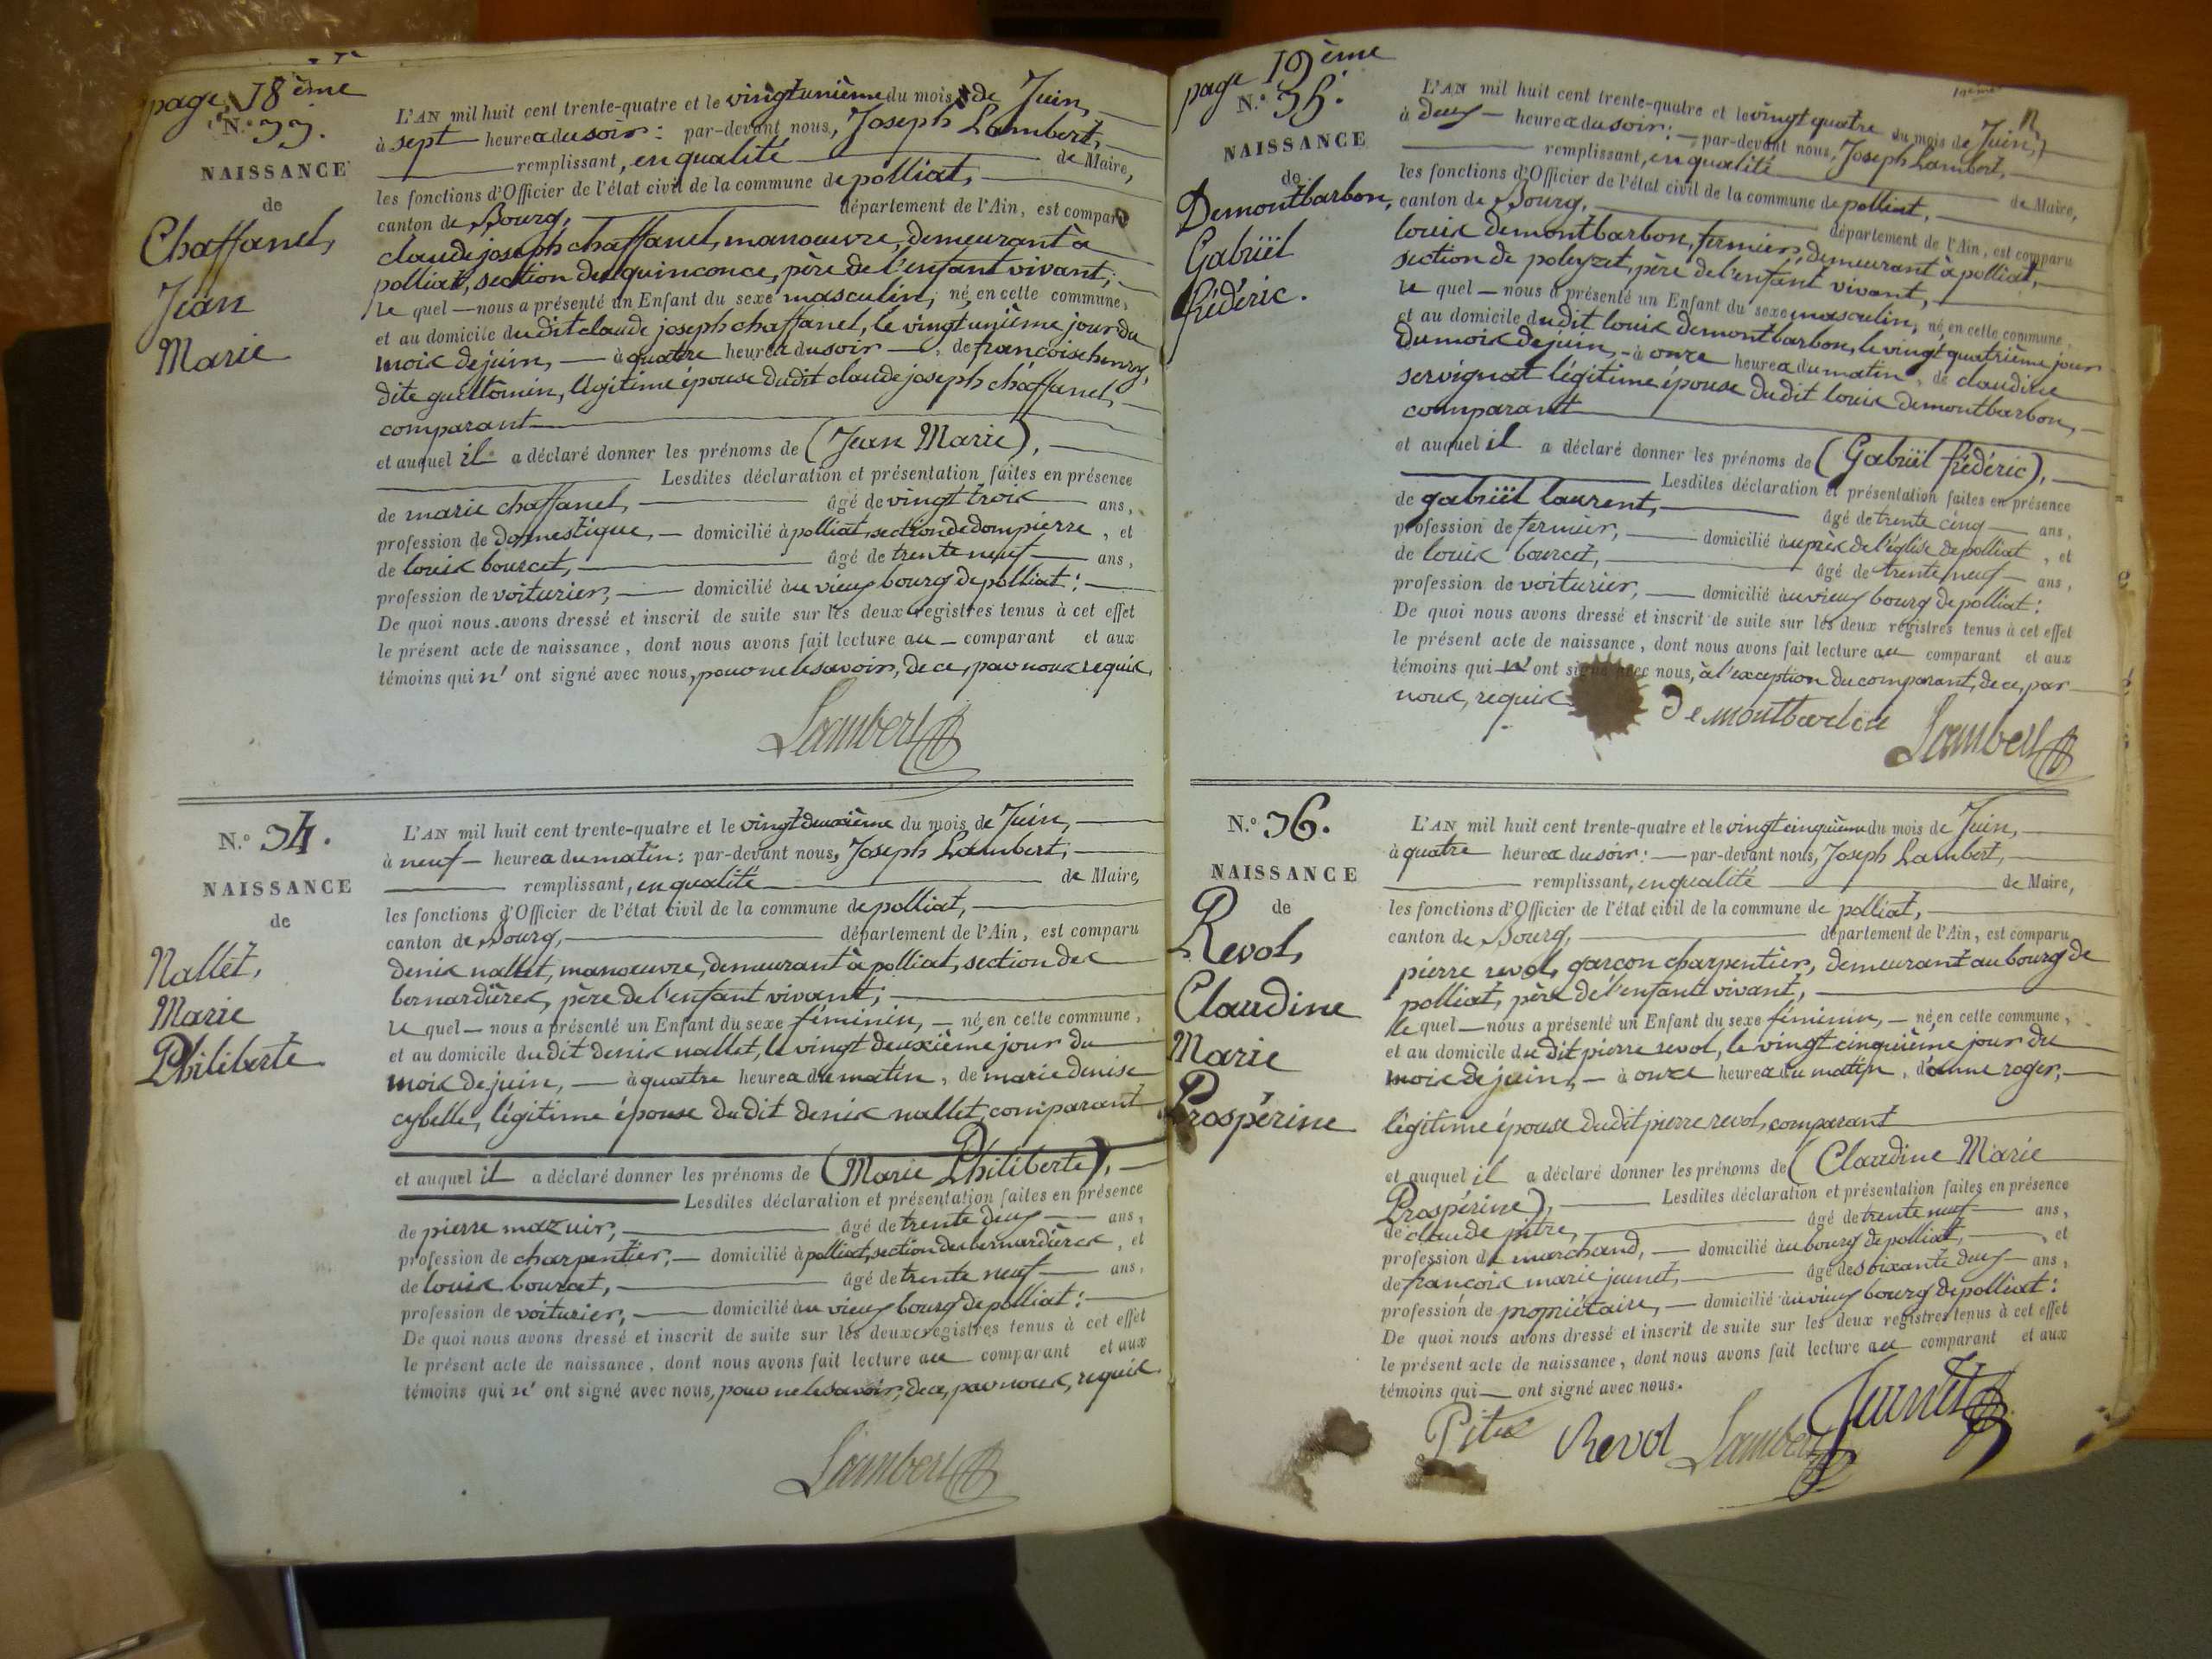 page 18ème
N.° 33.
NAISSANCE
de
Chaffanel,
Jean
Marie
L'AN mil huit cent trente-quatre et le vingt unième du mois de Juin,
à sept heures du soir : par-devant nous, Joseph Lambert,
remplissant, en qualité de Maire,
les fonctions d'Officier de l'état civil de la commune de polliat,
canton de Bourg, département de l'Ain, est comparu
claude joseph chaffanel, manoeuvre, demeurant à
polliat, section du quinconce, père de l'enfant vivant ;
le quel nous a présenté un Enfant du sexe masculin, né, en cette commune,
et au domicile du dit claude joseph chaffanel, le vingt unième jour du
mois de juin, à quatre heures du soir, de françoise henry,
dite guillomin, légitime épouse dudit claude joseph chaffanel,
comparant
et auquel il a déclaré donner les prénoms de (Jean Marie),
Lesdites déclaration et présentation faites en présence
de marie chaffanel, âgé de vingt trois ans,
profession de domestique, domicilié à polliat, section de dompierre, et
de louis bourcet, âgé de trente neuf ans,
profession de voiturier, domicilié au vieux bourg de polliat :
De quoi nous avons dressé et inscrit de suite sur les deux registres tenus à cet effet
le présent acte de naissance, dont nous avons fait lecture au comparant et aux
témoins qui n' ont signé avec nous, pour ne le savoir, de ce, par nous requis.
Lambert
N.° 34.
NAISSANCE
de
Nallet,
Marie
Philiberte
L'AN mil huit cent trente-quatre et le vingt deuxième du mois de Juin,
à neuf heures du matin : par-devant nous, Joseph Lambert,
remplissant, en qualité de Maire,
les fonctions d'Officier de l'état civil de la commune de polliat,
canton de Bourg, département de l'Ain, est comparu
denis nallet, manoeuvre, demeurant à polliat, section des
bernardières, père de l'enfant vivant ;
le quel nous a présenté un Enfant du sexe féminin, né, en cette commune,
et au domicile du dit denis nallet, le vingt deuxième jour du
mois de juin, à quatre heures du matin, de marie denise
cybelle, légitime épouse du dit denis nallet, comparant
et auquel il a déclaré donner les prénoms de (Marie Philiberte),
Lesdites déclaration et présentation faites en présence
de pierre mazuir, âgé de trente deux ans,
profession de charpentier, domicilié à polliat, section des bernardières, et
de louis bourcet, âgé de trente neuf ans,
profession de voiturier, domicilié au vieux bourg de polliat :
De quoi nous avons dressé et inscrit de suite sur les deux registres tenus à cet effet
le présent acte de naissance, dont nous avons fait lecture au comparant et aux
témoins qui n' ont signé avec nous, pour ne le savoir, de ce, par nous, requis.
Lambert
page 19ème
N.° 35.
NAISSANCE
de
Demontbarbon,
Gabriël
frédéric.
L'AN mil huit cent trente-quatre et le vingt quatre du mois de Juin,
à deux heures du soir : par-devant nous, Joseph Lambert,
remplissant, en qualité de Maire,
les fonctions d'Officier de l'état civil de la commune de polliat,
canton de Bourg, département de l'Ain, est comparu
louis demontbarbon, fermier, demeurant à polliat,
section de poleyzet, père de l'enfant vivant,
le quel nous a présenté un Enfant du sexe masculin, né, en cette commune,
et au domicile du dit louis demontbarbon, le vingt quatrième jour
du mois de juin, à onze heures du matin, de claudine
servignat légitime épouse du dit louis demontbarbon,
comparant
et auquel il a déclaré donner les prénoms de (Gabriël frédéric),
Lesdites déclaration et présentation faites en présence
de gabriël laurent, âgé de trente cinq ans,
profession de fermier, domicilié auprès de l'église de polliat, et
de louis bourcet, âgé de trente neuf ans,
profession de voiturier, domicilié au vieux bourg de polliat :
De quoi nous avons dressé et inscrit de suite sur les deux registres tenus à cet effet
le présent acte de naissance, dont nous avons fait lecture au comparant et aux
témoins qui n' ont signé avec nous, à l'exception du comparant, de ce, par
nous, requis
Demontbarbon Lambert
N.° 36.
NAISSANCE
de
Revol,
Claudine
Marie
Prospérine
L'AN mil huit cent trente-quatre et le vingt cinquième du mois de Juin,
à quatre heures du soir : par-devant nous, Joseph Lambert,
remplissant, en qualité de Maire,
les fonctions d'Officier de l'état civil de la commune de polliat,
canton de Bourg, département de l'Ain, est comparu
pierre revol, garçon charpentier, demeurant au bourg de
polliat, père de l'enfant vivant,
le quel nous a présenté un Enfant du sexe féminin, né, en cette commune,
et au domicile du dit pierre revol, le vingt cinquième jour du
mois de juin, à onze heures du matin, d'anne roger,
légitime épouse dudit pierre revol, comparant
et auquel il a déclaré donner les prénoms de (Claudine Marie
Prospérine), Lesdites déclaration et présentation faites en présence
de claude pitre, âgé de trente neuf ans,
profession de marchand, domicilié au bourg de polliat, et
de françois marie jeunet, âgé de soixante deux ans,
profession de propriétaire, domicilié au vieux bourg de polliat :
De quoi nous avons dressé et inscrit de suite sur les deux registres tenus à cet effet
le présent acte de naissance, dont nous avons fait lecture au comparant et aux
témoins qui ont signé avec nous.
Pitre Revol Lambert Jeunet